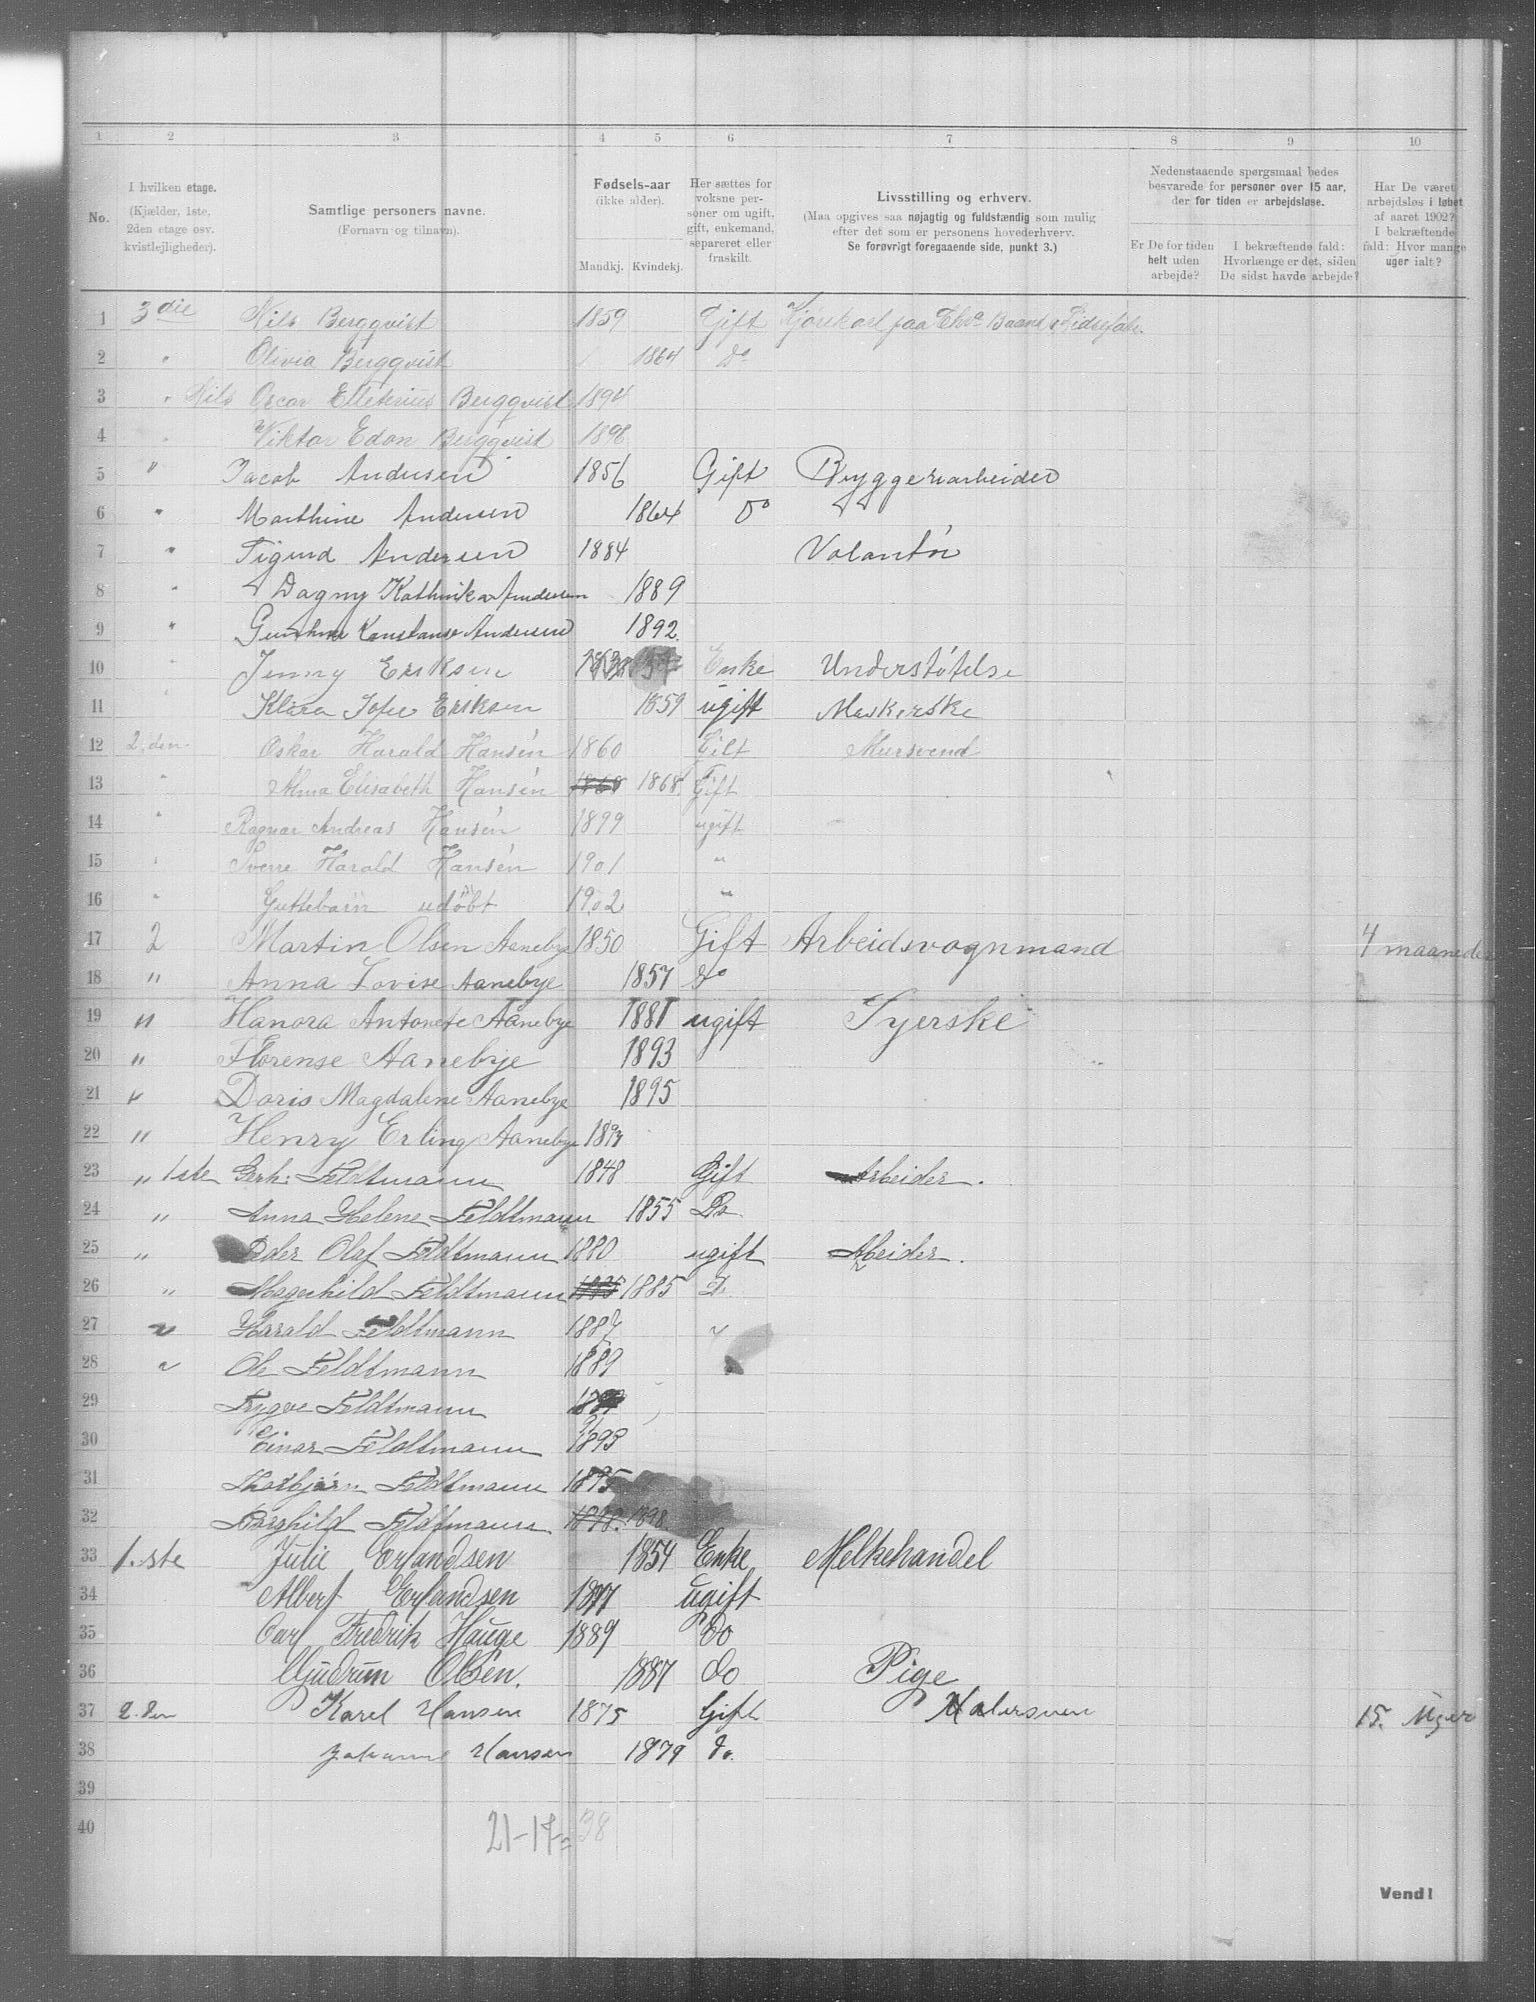 1 2 3 4 5 6 7 8 9 10
No.
I hvilken etage.
(Kjælder, 1ste,
2den etage osv.
kvistlejligheder).
Samtlige personers navne.
(Fornavn og tilnavn).
Fødsels-aar
(ikke alder).
Mandkj. Kvindekj.
Her sættes for
voksne per-
soner om ugift,
gift, enkemand,
separeret eller
fraskilt.
Livsstilling og erhverv.
(Maa opgives saa nøjagtig og fuldstændig som mulig
efter det som er personens hovederhverv.
Se forøvrigt foregaaende side, punkt 3.)
Nedenstaaende spørgsmaal bedes
besvarede for personer over 15 aar,
der for tiden er arbejdsløse.
Er De for tiden
helt uden
arbejde?
I bekræftende fald:
Hvorlænge er det, siden
De sidst havde arbejde?
Har De været
arbejdsløs i løbet
af aaret 1902?
I bekræftende
fald: Hvor mange
uger ialt?
1 3die Nils Bergqvist 1859 Gift Kjørekarl paa
2 " Olivia Bergqvist 1864 Do
3 " Nils Oscar Bergqvist 1894
4 " Viktor Edon Bergqvist 1898
5 " Jacob Andersen 1856 Gift Bryggeriarbeider
6 " Marthine Andersen 1864 Do
7 " Sigurd Andersen 1884 Volantør
8 " Dagny Kathrike Andersen 1889
9 " Konstanse Andersen 1892.
10 " Jenny Eriksen Enke Understøtelse
11 " Klara Sofie Eriksen 1859 ugift
12 2.den Oskar Harald Hansén 1860 Gift Mursvend
13 " Alma Elisabeth Hansén 1868 1868. Gift
14 " Ragnar Andreas Hansén 1899 ugift
15 " Sverre Harald Hansén 1901 "
16 " Guttebarn udøbt 1902 "
17 2 Martin Olsen Aanebye 1850 Gift Arbeidsvognmand 4 maaneder
18 " Anna Lovise Aanebye 1857 Do
19 " Hanora Antonete Aanebye 1881 ugift Syerske
20 " Florense Aanebye 1893
21 " Doris Magdalene Aanebye 1895
22 " Henry Erling Aanebye
23 " 1ste Gerh: Feldtmann 1848 Gift Arbeider.
24 " Anna Helene Feldtmann 1855 Do
25 " Peder Olaf Feldtmann 1880 ugift Arbeider.
26 " Magnhild Feldtmann 1885 1885 D.
27 " Harald Feldtmann 1887 "
28 " Ole Feldtmann 1889
29 Trygve Feldtmann
30 Einar Feldtmann 1893
31 Thorbjørn Feldtmann 1895
32 Borghild Feldtmann 1898. 1898
33 1.ste Julie Erlandsen 1854 Enke Melkehandel
34 Albert Erlandsen 1877 ugift
35 Carl Fredrik Hauge 1889 do
36 Gudrun Olsen. 1887 do Pige
37 2.den Karel Hansen 1875 Gift Malersven 15. Uger
38 Johanne Hansen 1879 do.
39
40
21-17= 38
Vend!